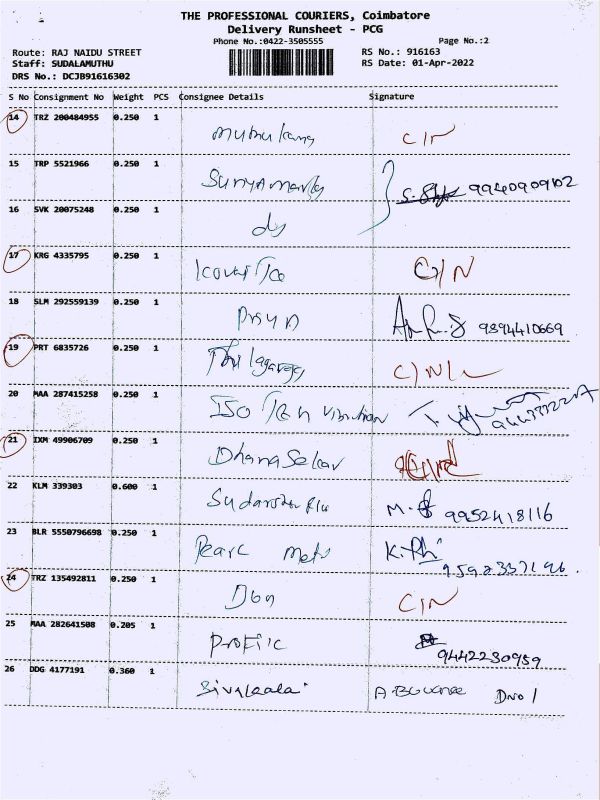 THE PROFESSIONAL COURIERS, Coimbatore
Delivery Runsheet - PCG
Phone No.:0422-3505555 Page No.:2
Route: RAJ NAIDU STREET RS No.: 916163
Staff: SUDALAMUTHU RS Date: 01-Apr-2022
DRS No.: DCJB91616302
S No Consignment No Weight PCS Consignee Details Signature
14 TRZ 200484955 0.250 1 C/N
15 TRP 5521966 0.250 1 9940909102
16 SVK 20075248 0.250 1 do
17 KRG 4335795 0.250 1 C/N
18 SLM 292559139 0.250 1 9394410669
19 PRT 6835726 0.250 1 Thilagaraj
20 MAA 287415258 0.250 1 ISO Tech Vibration
21 IXM 49906709 0.250 1 Dhanasekar
22 KLM 339303 0.600 1 9952418116
23 BLR 5550796698 0.250 1
24 TRZ 135492811 0.250 1 C/N
25 MAA 282641508 0.205 1 9442230959
26 DDG 4177191 0.360 1 Sivakala D no 1